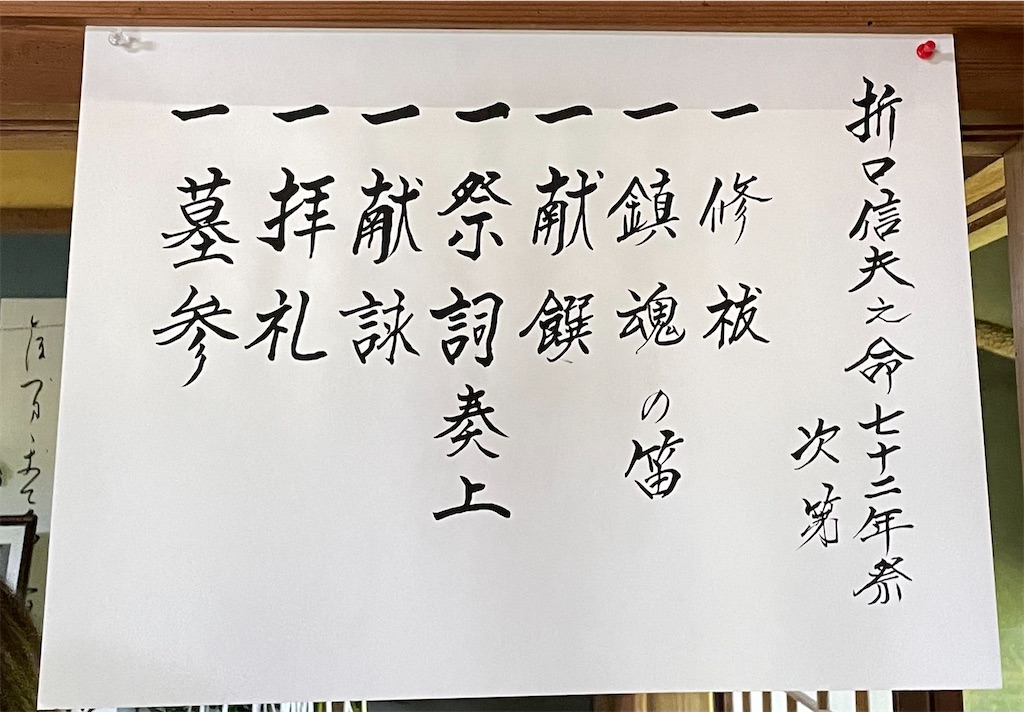 折口信夫之命七十二年祭
次第
一 修祓
一 鎮魂の笛
一 献饌
一 祭詞奏上
一 献詠
一 拝礼
一 墓参